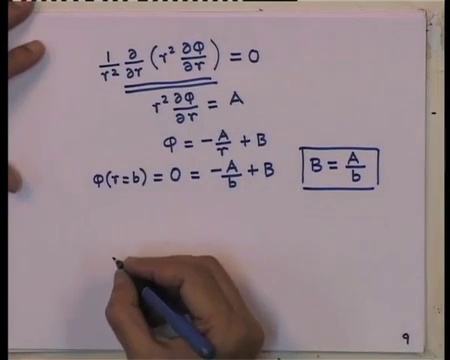 1/r² ∂/∂r (r² ∂φ/∂r) = 0
r² ∂φ/∂r = A
φ = -A/r + B
φ(r=b) = 0 = -A/b + B B = A/b
9